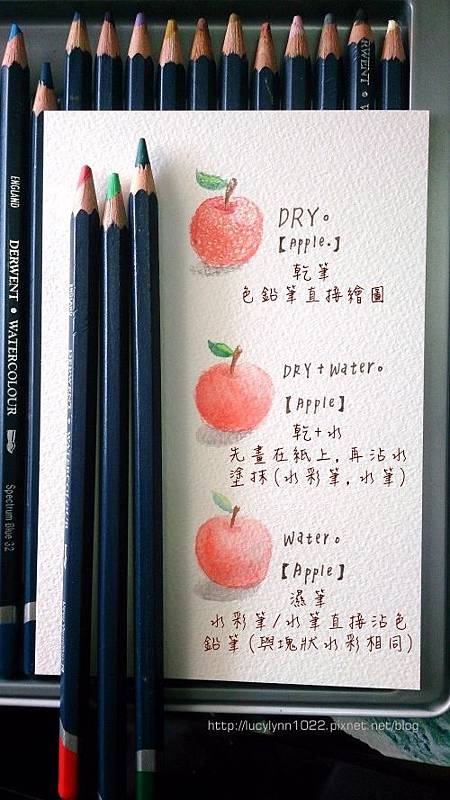 DRY。
【Apple.】
乾筆
色鉛筆直接繪圖
DRY+Water。
【Apple】
乾+水
先畫在紙上,再沾水
塗抹(水彩筆,水筆)
Water。
【Apple】
濕筆
水彩筆/水筆直接沾色
鉛筆(與塊狀水彩相同)
ENGLAND DERWENT • WATERCOLOUR Spectrum Blue 32
RWENT •
http://lucylynn1022.pixnet.net/blog